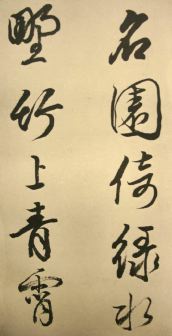 名園倚緑水
野竹上青霄